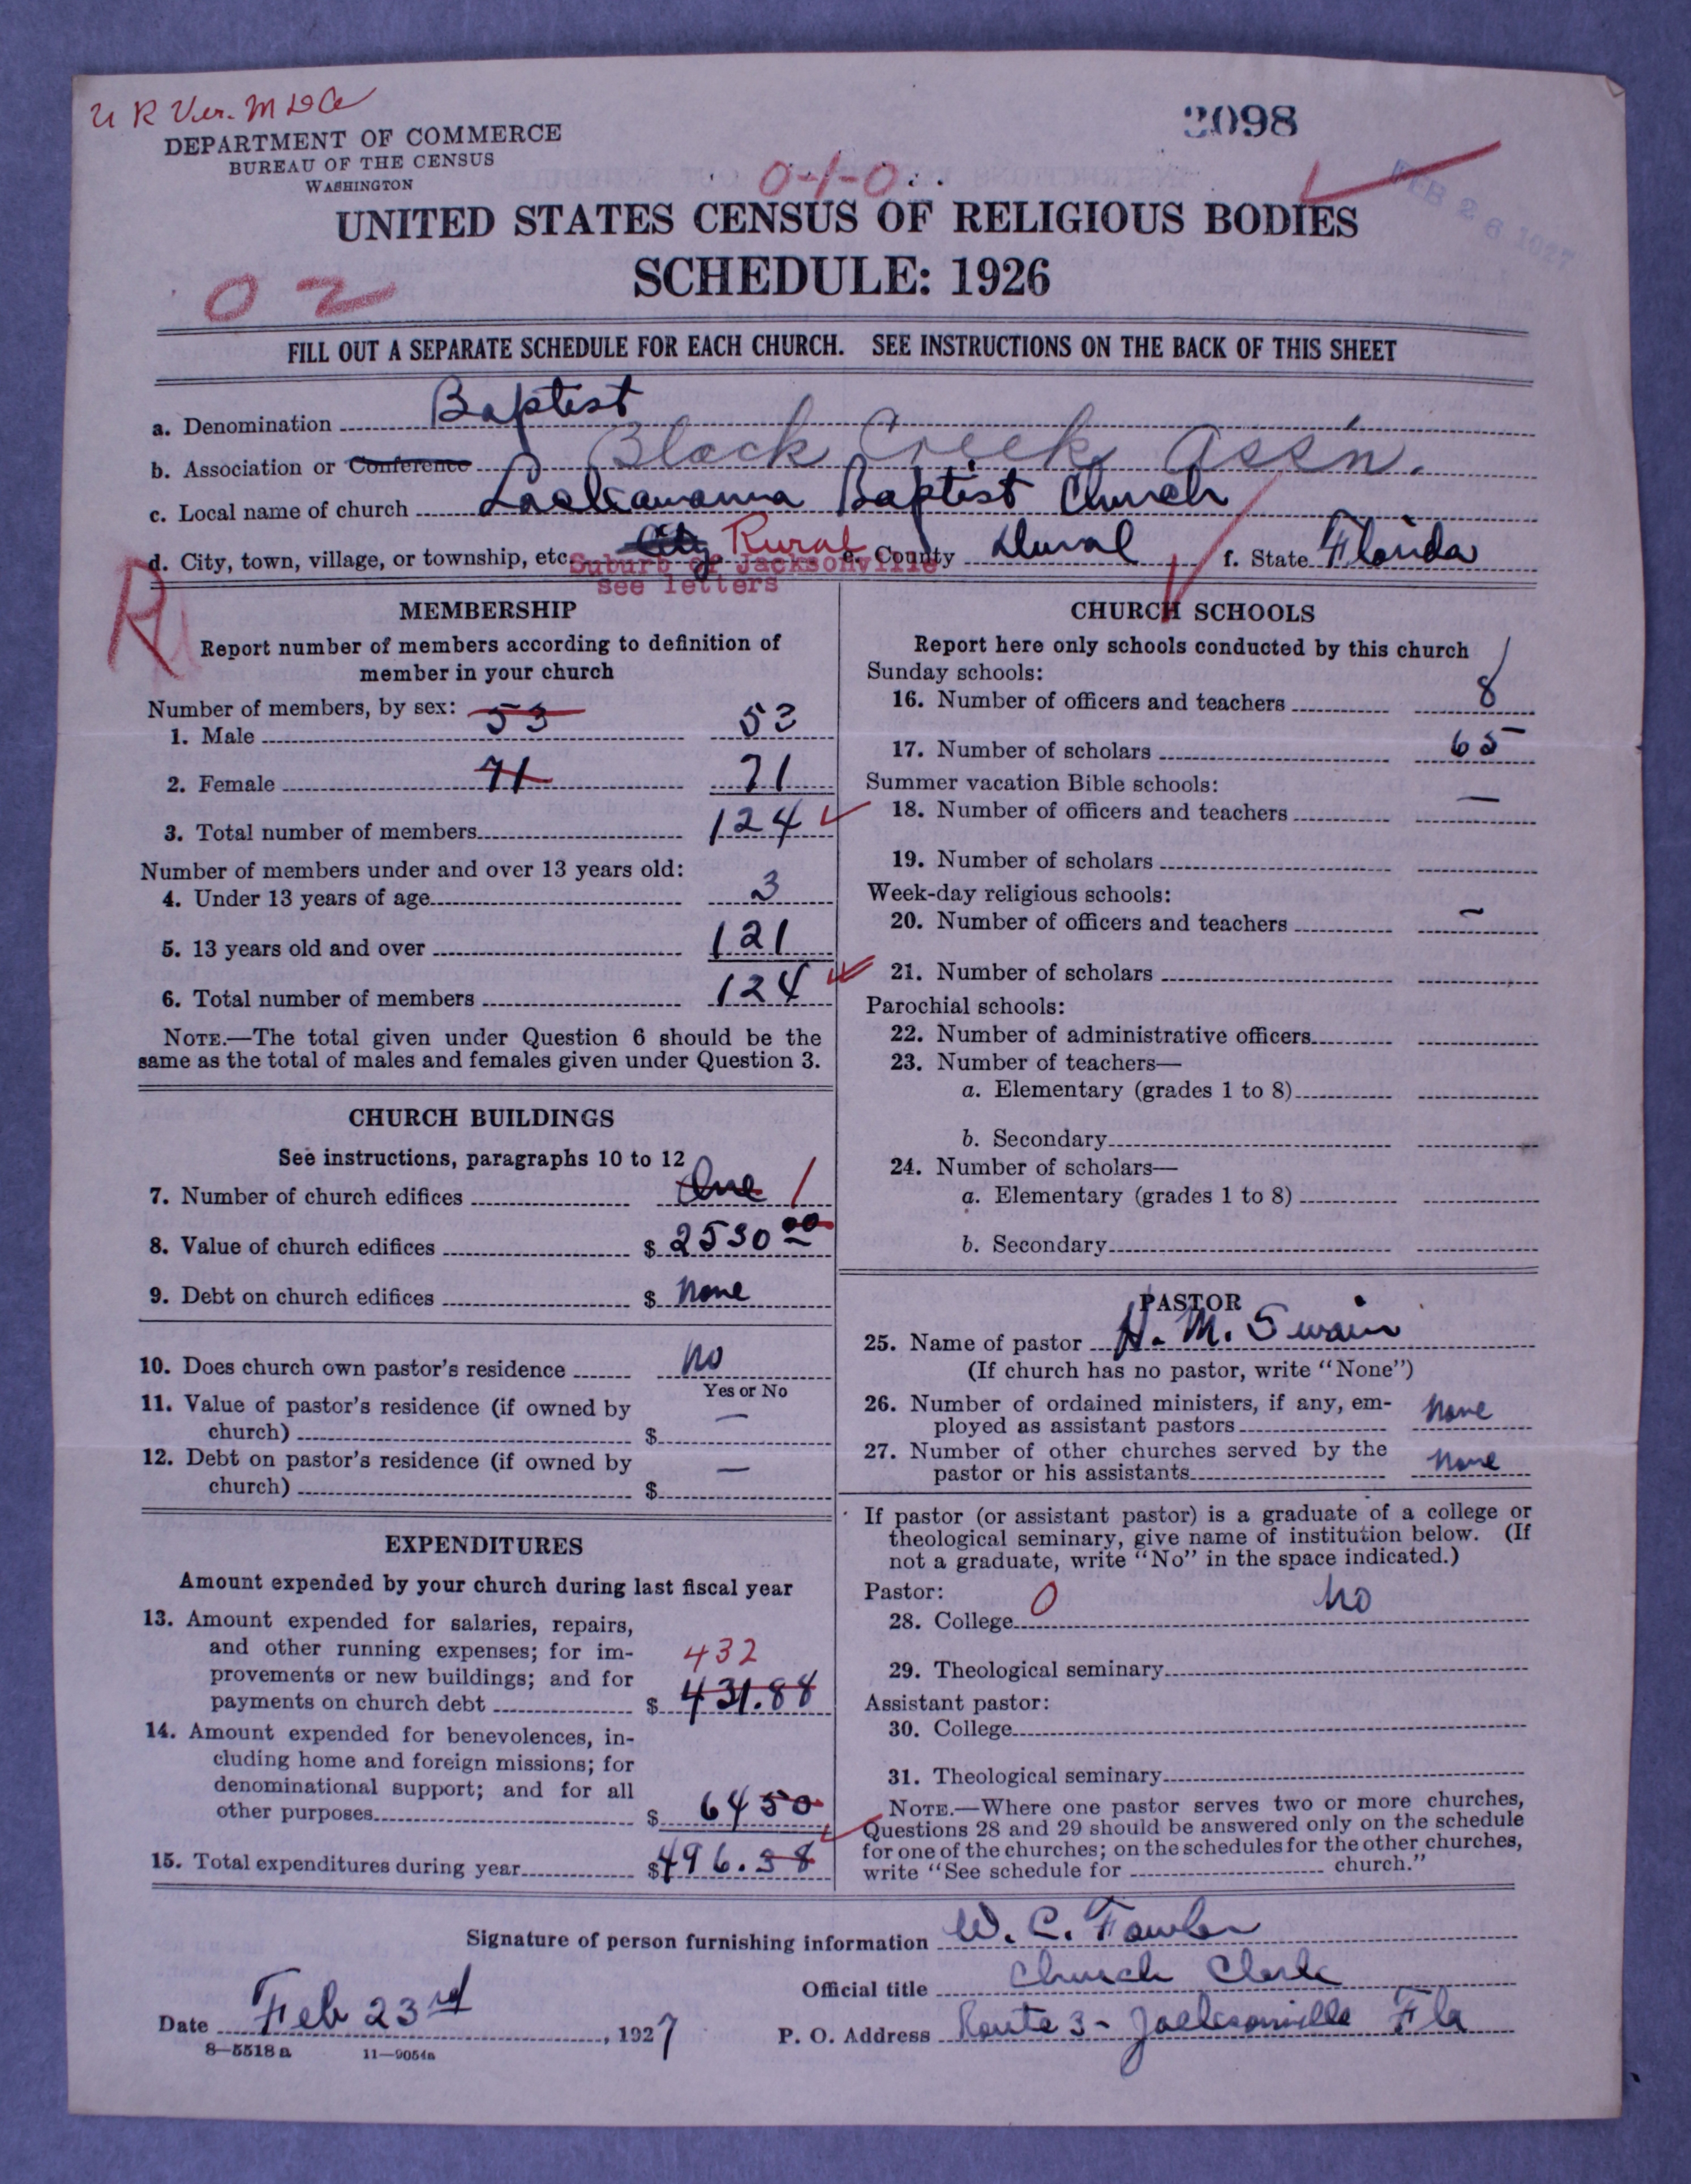 U R Ver. M
DEPARTMENT OF COMMERCE
BUREAU OF THE CENSUS
WASHINGTON
2098
0-1-0
FEB 26 1927
UNITED STATES CENSUS OF RELIGIOUS BODIES
SCHEDULE: 1926
02
FILL OUT A SEPARATE SCHEDULE FOR EACH CHURCH. SEE INSTRUCTIONS ON THE BACK OF THIS SHEET
a. Denomination Baptist
b. Association or Conference Black Creek Ass'n.
c. Local name of church Lackawanna Baptist Church
d. City, town, village, or township, etc. City Rural e. County Duval f. State Florida
Suburb of Jacksonville
see letters
R
MEMBERSHIP
Report number of members according to definition of
member in your church
Number of members, by sex:
1. Male 53 53
2. Female 71 71
3. Total number of members 124
Number of members under and over 13 years old:
4. Under 13 years of age 3
5. 13 years old and over 121
6. Total number of members 124
NOTE.—The total given under Question 6 should be the
same as the total of males and females given under Question 3.
CHURCH BUILDINGS
See instructions, paragraphs 10 to 12
7. Number of church edifices One 1
8. Value of church edifices $ 2530 00
9. Debt on church edifices $ None
10. Does church own pastor's residence No
Yes or No
11. Value of pastor's residence (if owned by
church) $ —
12. Debt on pastor's residence (if owned by
church) $ —
EXPENDITURES
Amount expended by your church during last fiscal year
13. Amount expended for salaries, repairs,
and other running expenses; for im-
provements or new buildings; and for 432
payments on church debt $ 431.88
14. Amount expended for benevolences, in-
cluding home and foreign missions; for
denominational support; and for all
other purposes $ 64 50
15. Total expenditures during year $ 496.38
CHURCH SCHOOLS
Report here only schools conducted by this church
Sunday schools:
16. Number of officers and teachers 8
17. Number of scholars 65
Summer vacation Bible schools:
18. Number of officers and teachers —
19. Number of scholars
Week-day religious schools:
20. Number of officers and teachers —
21. Number of scholars
Parochial schools:
22. Number of administrative officers
23. Number of teachers—
a. Elementary (grades 1 to 8)
b. Secondary
24. Number of scholars—
a. Elementary (grades 1 to 8)
b. Secondary
PASTOR
25. Name of pastor H. M. Swain
(If church has no pastor, write "None")
26. Number of ordained ministers, if any, em-
ployed as assistant pastors None
27. Number of other churches served by the
pastor or his assistants None
If pastor (or assistant pastor) is a graduate of a college or
theological seminary, give name of institution below. (If
not a graduate, write "No" in the space indicated.)
Pastor:
28. College 0 No
29. Theological seminary
Assistant pastor:
30. College
31. Theological seminary
NOTE.—Where one pastor serves two or more churches,
Questions 28 and 29 should be answered only on the schedule
for one of the churches; on the schedules for the other churches,
write "See schedule for church."
Signature of person furnishing information W. C. Fowler
Official title Church Clerk
Date Feb 23rd, 1927 P. O. Address Route 3 - Jacksonville Fla
8-5518 a 11-9054a